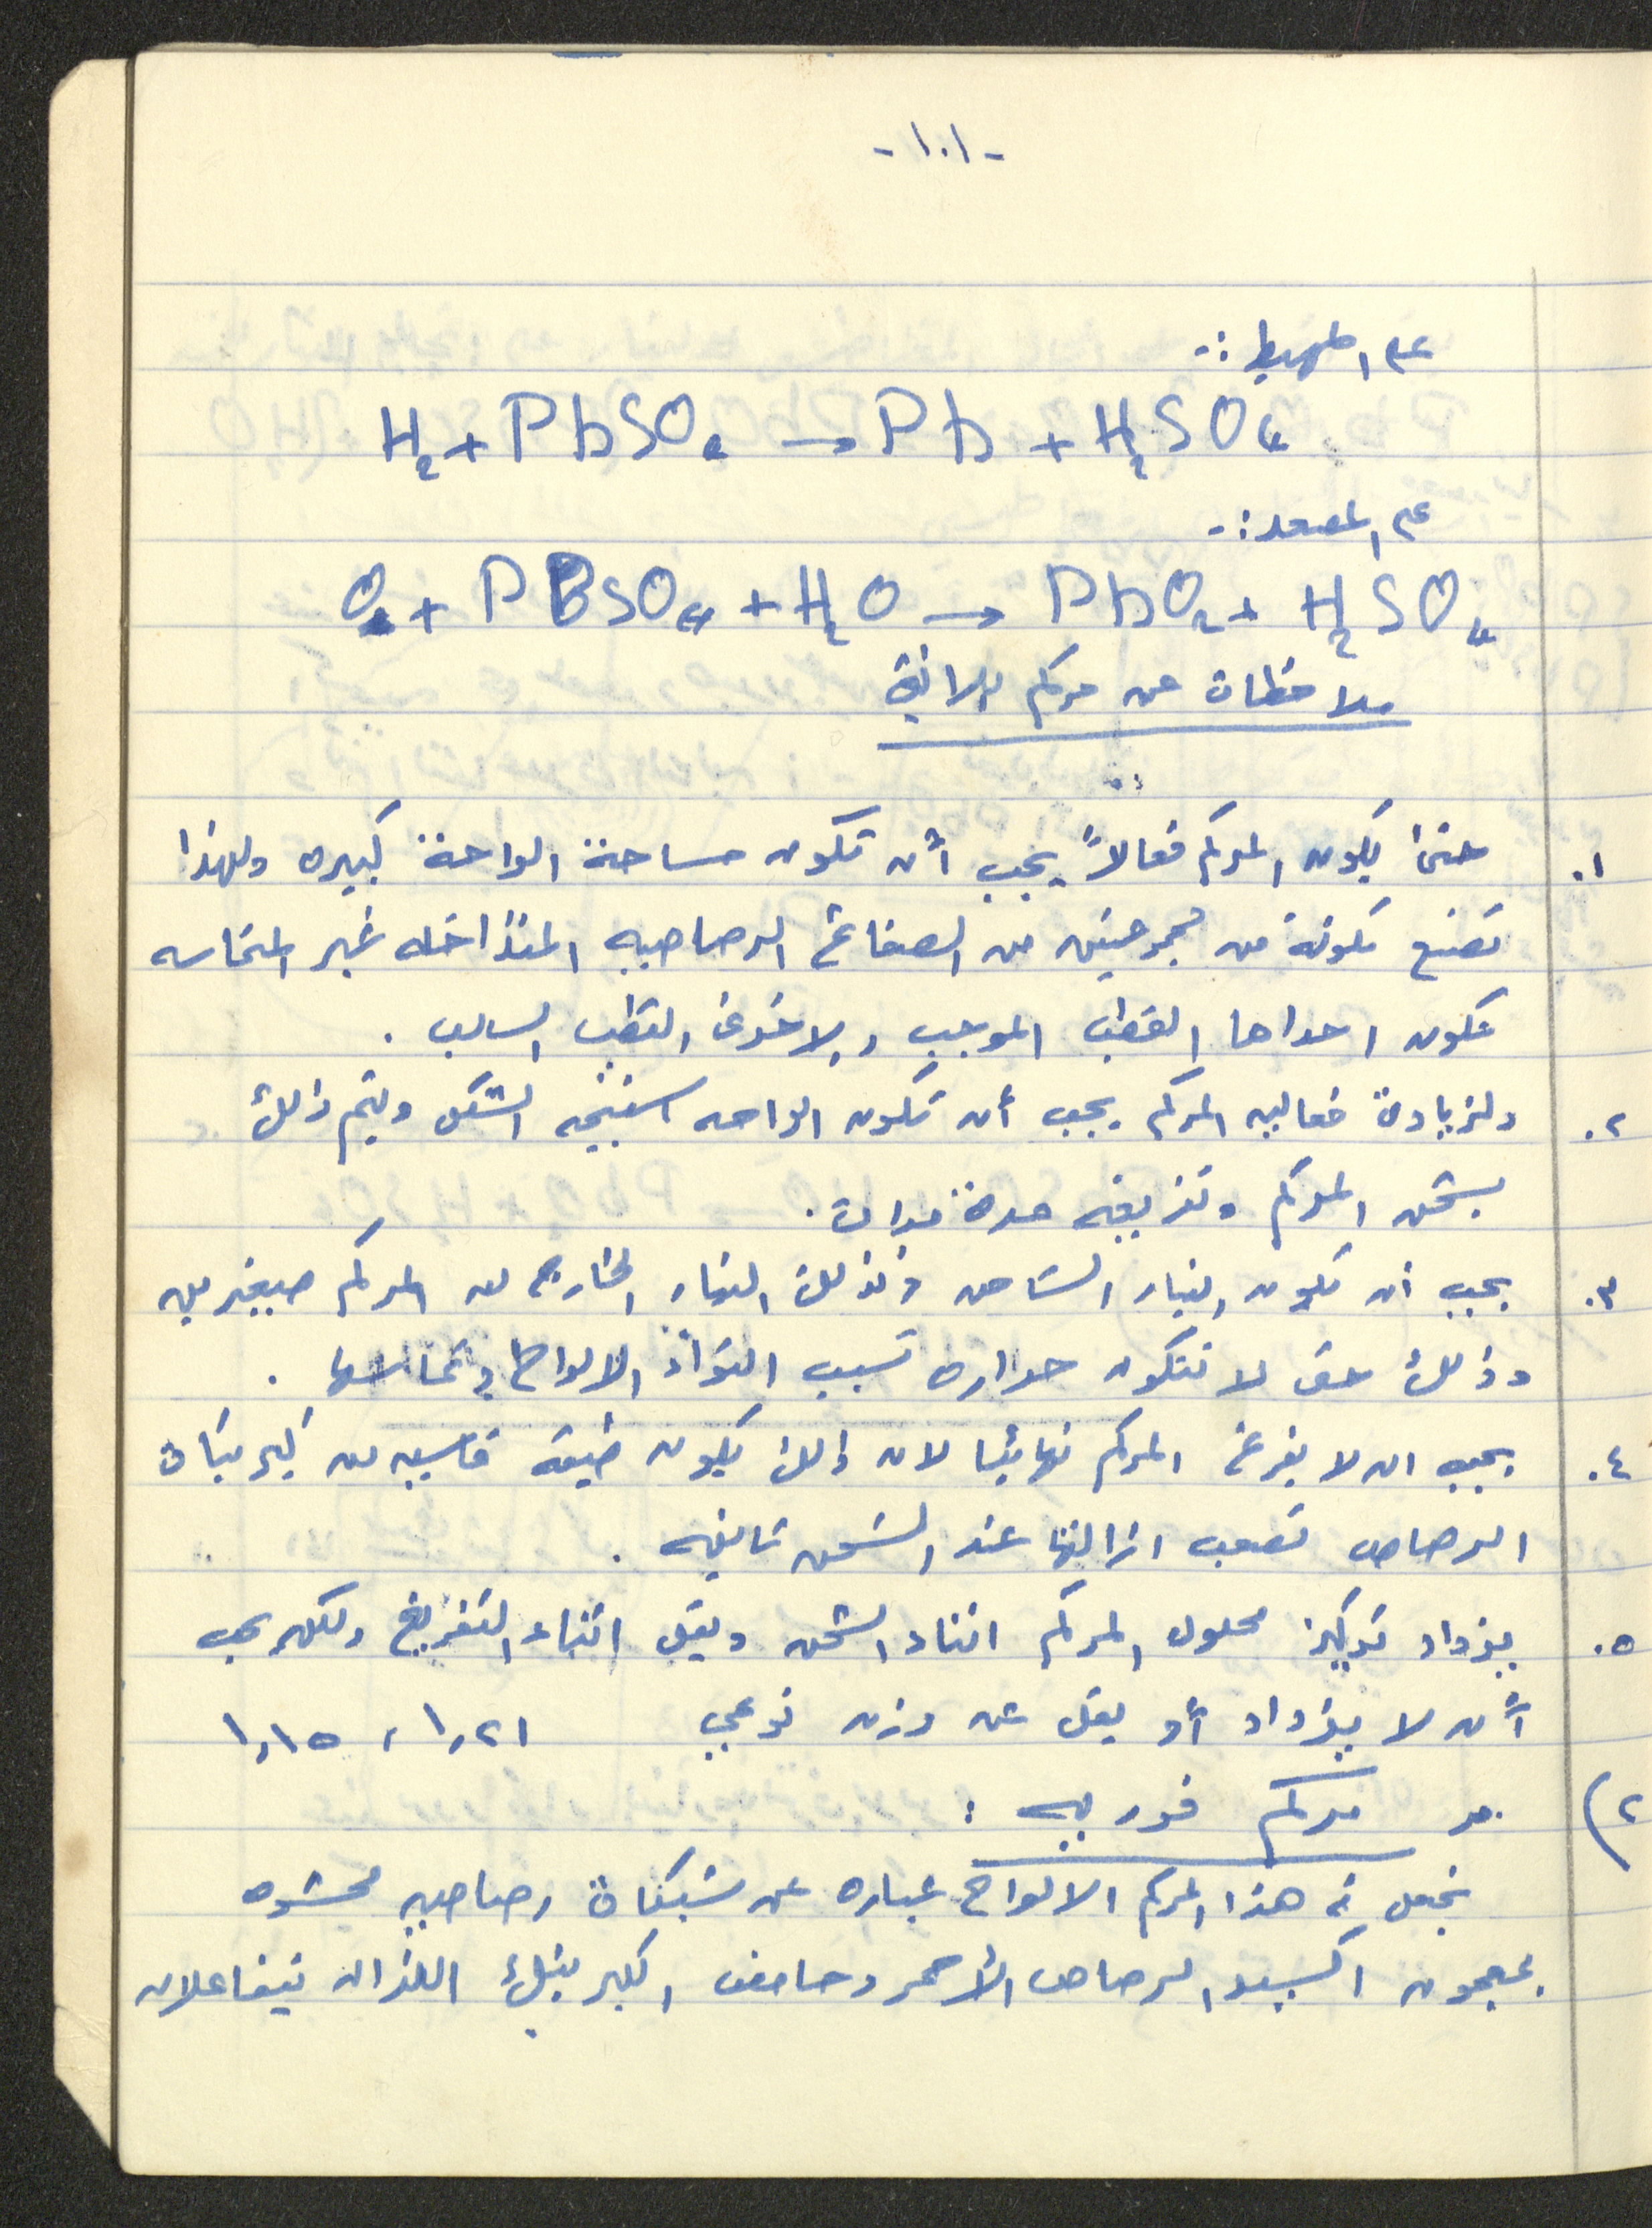 - ١٠١ -
على المهبط :-
H₂ + PbSO₄ → Pb + H₂SO₄
على المصعد :-
O₂ + PbSO₄ + H₂O → PbO₂ + H₂SO₄
ملاحظات عن مركم بلانتيه
:
١. حتى يكون المركم فعالاً يجب أن تكون مساحة الواحة كبيره ولهذا
تصنع مكونة من مجموعتين من الصفائح الرصاصيه المتداخله غير المتماسه
تكون احداها القطب الموجب والاخرى القطب السالب .
٢. ولزيادة فعاليه المركم يجب أن تكون الواحه اسفنجيه الشكل ويتم ذالك
بشحن المركم وتفريغه عدة مرات .
٣. يجب ان يكون التيار الشاحن وكذلك التيار الخارج من المركم صغيرين
وذلك حتى لا تتكون حراره تسبب التواء الالواح وتماسها .
٤. يجب ان لا يفرغ المركم نهائيا لان ذالك يكون طبقه قاسيه من كبريتات
الرصاص تصعب ازالتها عند الشحن ثانيه .
٥. يزداد تركيز محلول المركم اثناء الشحن ويقل اثناء التفريغ ولكن يجب
أن لا يزداد أو يقل عن وزن نوعي ١,٢١ ، ١,١٥
٢) مركم فوريه :
نجعل في هذا المركم الالواح عباره عن شبكات رصاصيه محشوه
بمعجون اكسيد الرصاص الأحمر وحامض الكبريتيك اللذان يتفاعلان